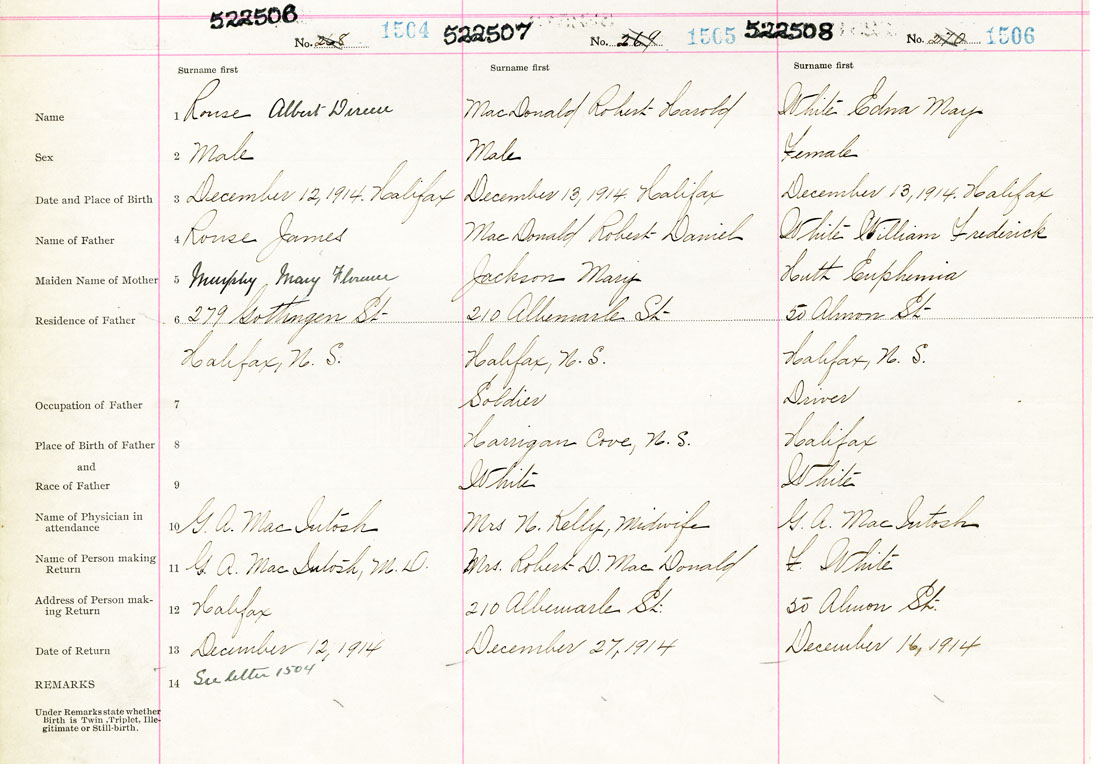 522506 No. 268 1504 522507 No. 269 1505 522508 No. 270 1506
Surname first Surname first Surname first
Name 1 Rouse Albert MacDonald Robert Harold White Edna May
Sex 2 Male Male Female
Date and Place of Birth 3 December 12, 1914. Halifax December 13, 1914. Halifax December 13, 1914. Halifax
Name of Father 4 Rouse James MacDonald Robert Daniel White William Frederick
Maiden Name of Mother 5 Murphy, Mary Florence Jackson Mary Huth Euphemia
Residence of Father 6 279 Gottingen St. 210 Albemarle St. 50 Almon St.
Halifax, N. S. Halifax, N. S. Halifax, N. S.
Occupation of Father 7 Soldier Driver
Place of Birth of Father 8 Harrigan Cove, N. S. Halifax
and
Race of Father 9 White White
Name of Physician in
attendance 10 G. A. MacIntosh Mrs N. Kelly, Midwife G. A. MacIntosh
Name of Person making
Return 11 G. A. MacIntosh, M. D. Mrs. Robert D. MacDonald F. White
Address of Person mak-
ing Return 12 Halifax 210 Albemarle St. 50 Almon St.
Date of Return 13 December 12, 1914 December 27, 1914 December 16, 1914
REMARKS 14 See letter 1504
Under Remarks state whether
Birth is Twin, Triplet, Ille-
gitimate or Still-birth.